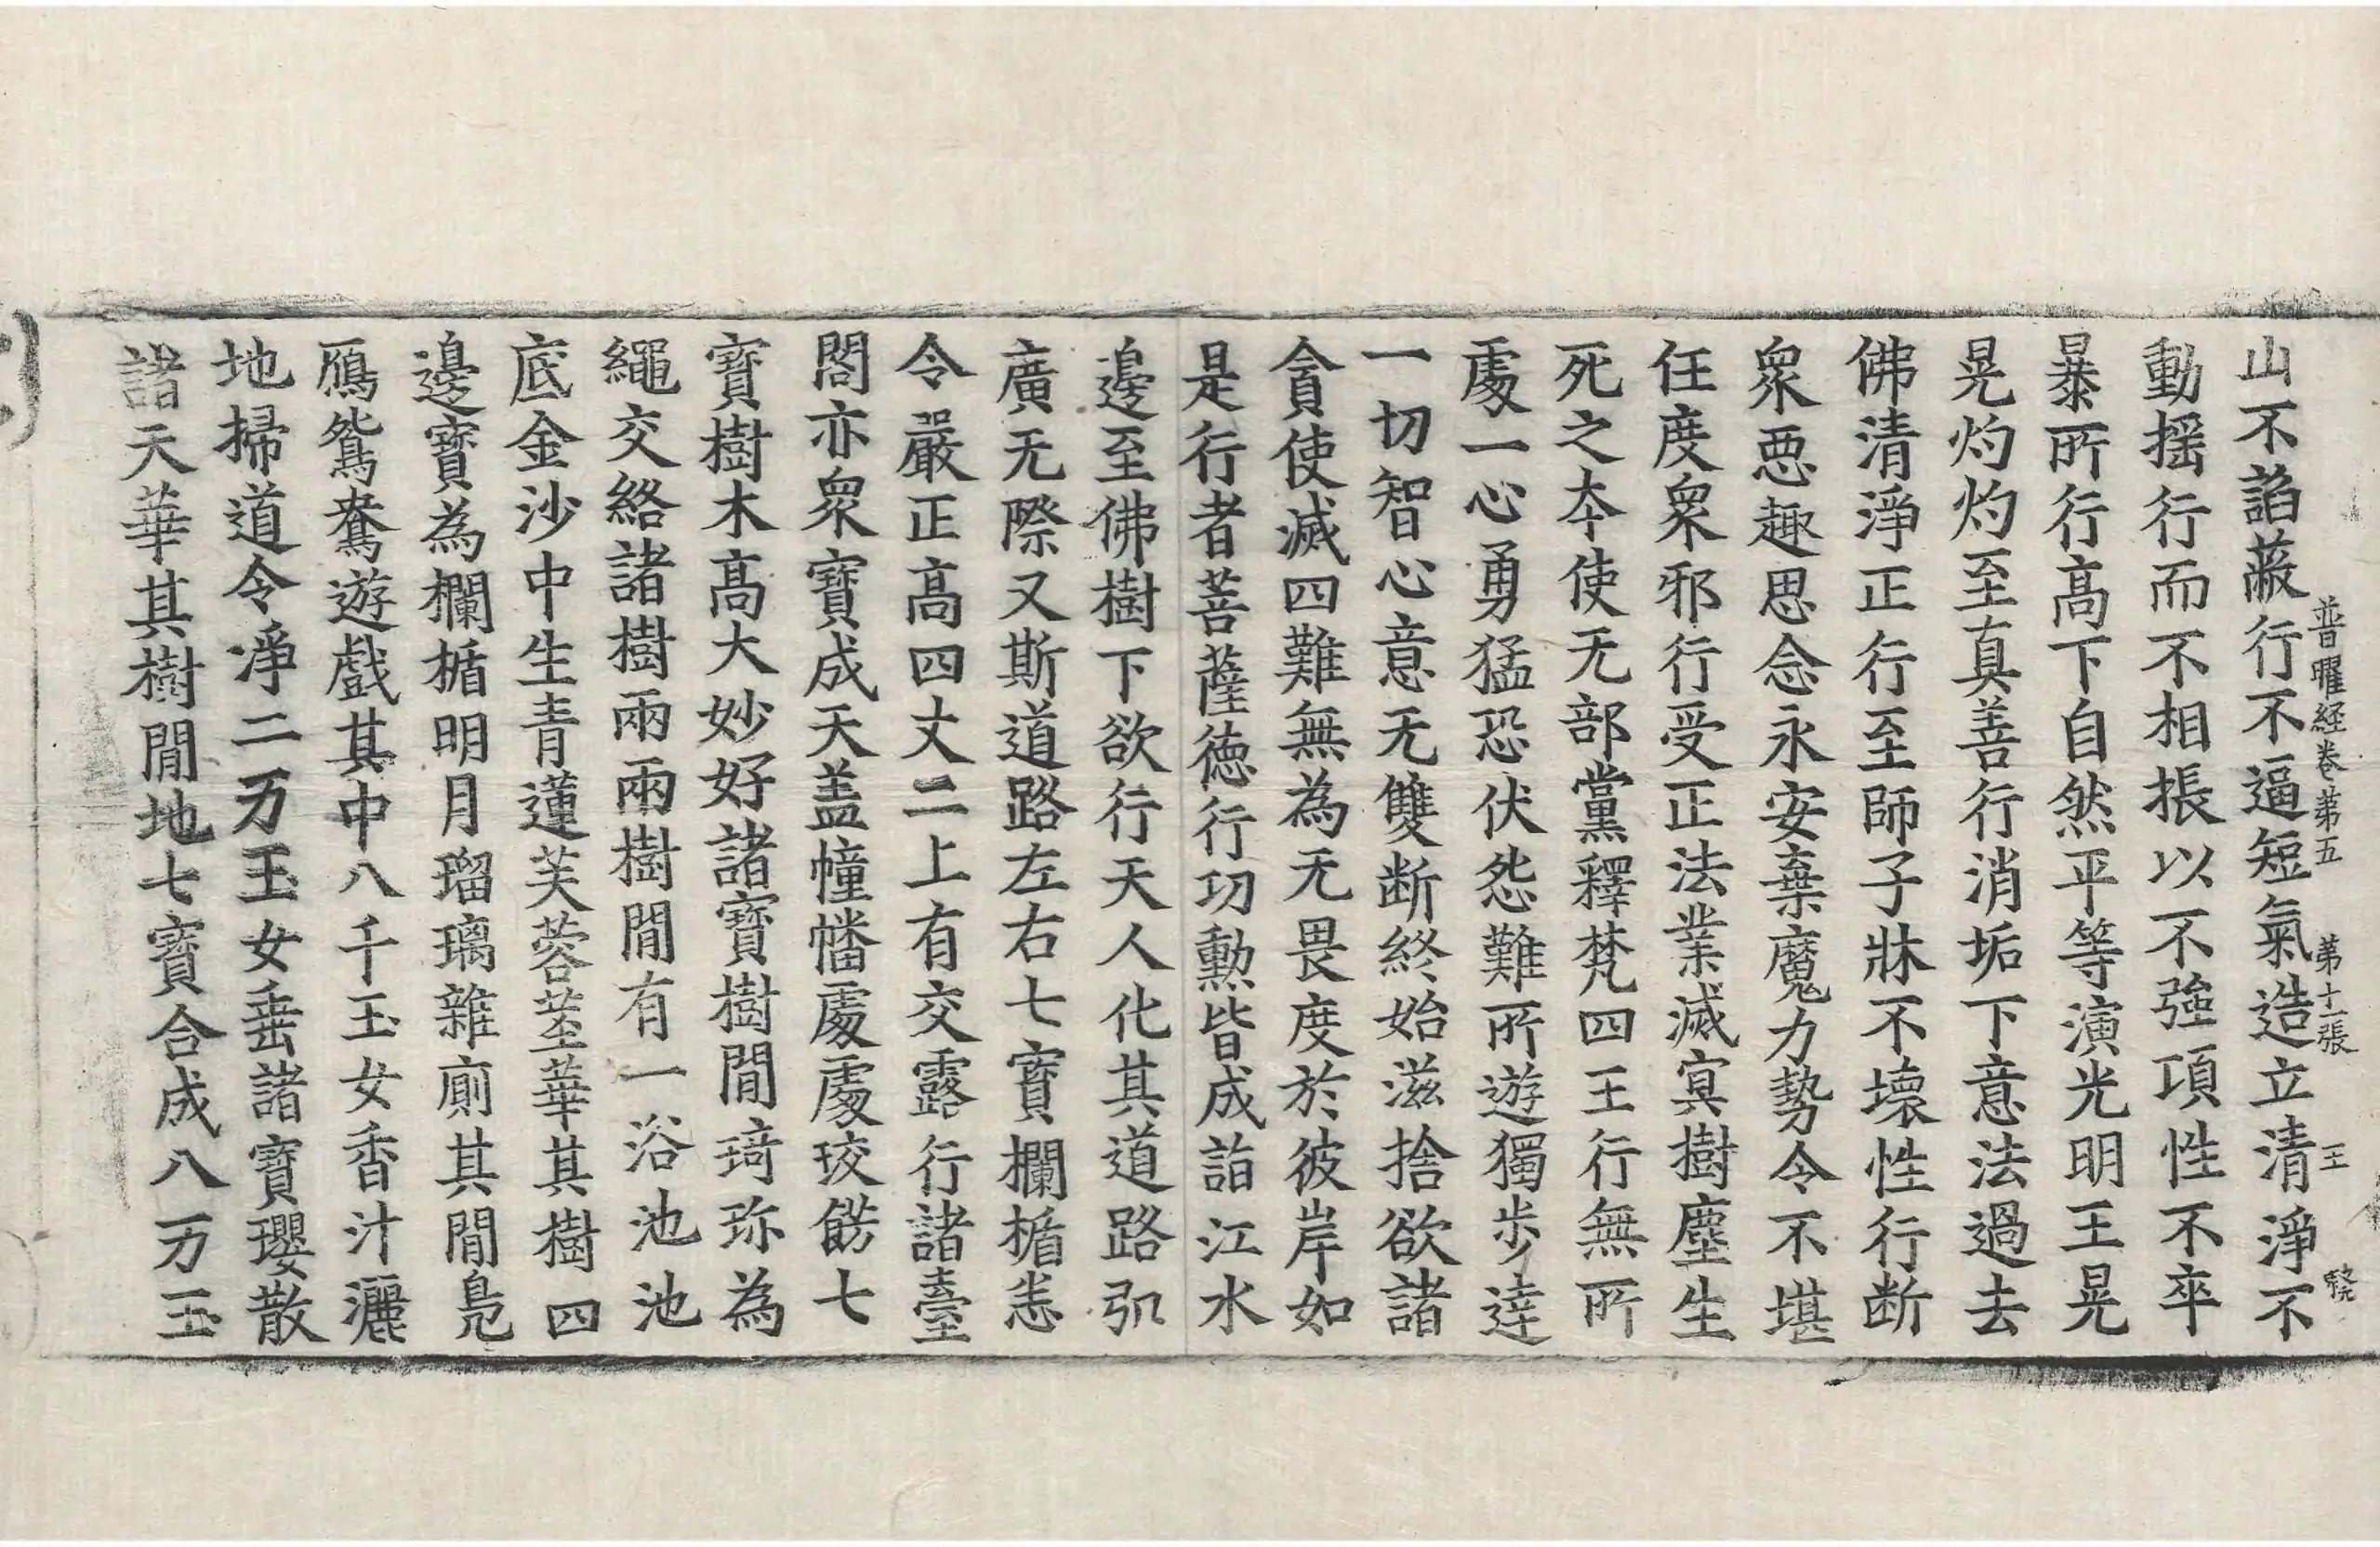 普曜経卷苐五　苐十一張　王
山不諂蔽行不逼短氣造立清淨不
動揺行而不相掁以不強項性不卒
暴所行高下自然平等演光明王晃
晃灼灼至真善行消垢下意法過去
佛清淨正行至師子牀不壊性行断
衆惡趣思念永安棄魔力勢令不堪
任度衆邪行受正法業滅㝠樹塵生
死之夲使无部黨釋梵四王行無所
處一心勇猛恐伏怨難所遊獨步達
一切智心意无雙断終始滋捨欲諸
貪使滅四難無為无畏度於彼岸如
是行者菩薩德行功勲皆成詣江水
邊至佛樹下欲行天人化其道路弘
廣无際又斯道路左右七寳欄楯恚
令嚴正高四丈二上有交露行諸臺
閣亦衆寳成天盖幢幡處處珓餝七
寳樹木高大妙好諸寳樹間琦珎為
繩交絡諸樹兩兩樹間有一浴池池
底金沙中生青蓮芙蓉莖華其樹四
邊寳為欄楯明月瑠璃雜廁其間鳧
鴈鴛鴦遊戲其中八千玉女香汁灑
地掃道令淨二万玉女垂諸寳瓔散
諸天華其樹間地七寳合成八万玉